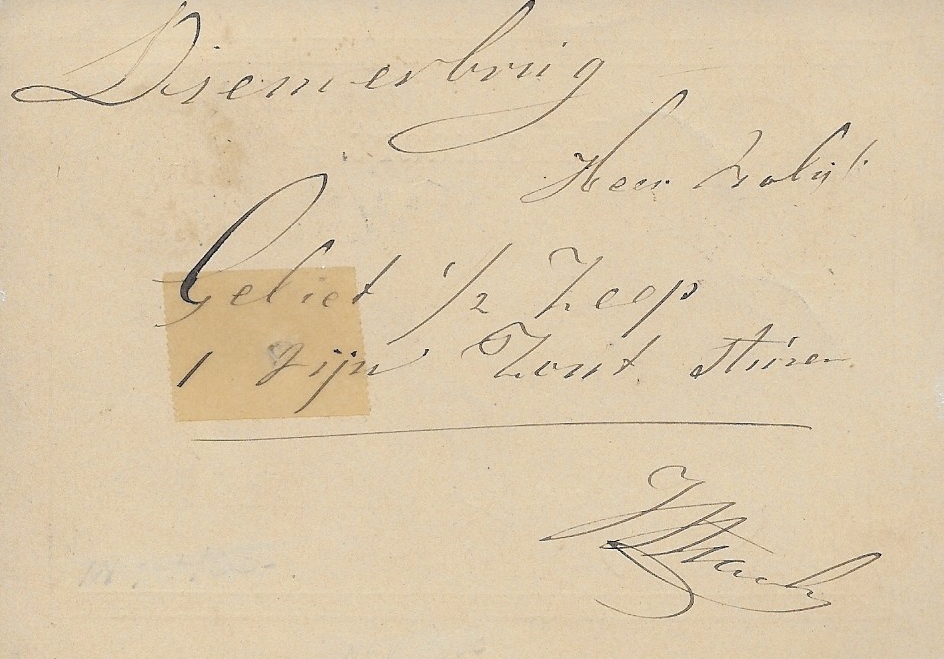 Diemerbrug
Heer
Geliet 1/2 Zeep
1 Fijn Zout sturen